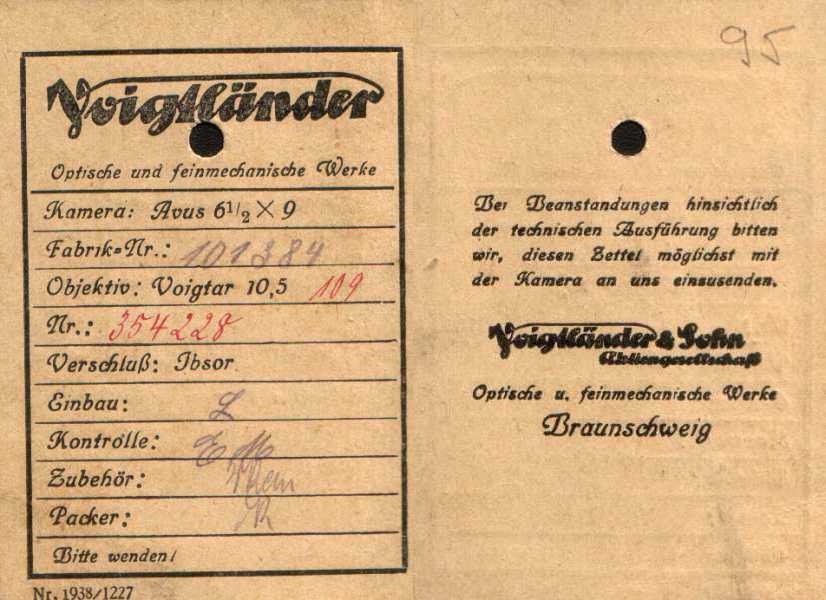 Voigtländer
Optische und feinmechanische Werke
Kamera: Avus 6½ × 9
Fabrik=Nr.: 101384
Objektiv: Voigtar 10,5 109
Nr.: 354228
Verschluß: Ibsor
Einbau: L
Kontrolle:
Zubehör:
Packer:
Bitte wenden!
Nr. 1938/1227
95
Bei Beanstandungen hinsichtlich
der technischen Ausführung bitten
wir, diesen Zettel möglichst mit
der Kamera an uns einzusenden.
Voigtländer & Sohn
Aktiengesellschaft
Optische u. feinmechanische Werke
Braunschweig